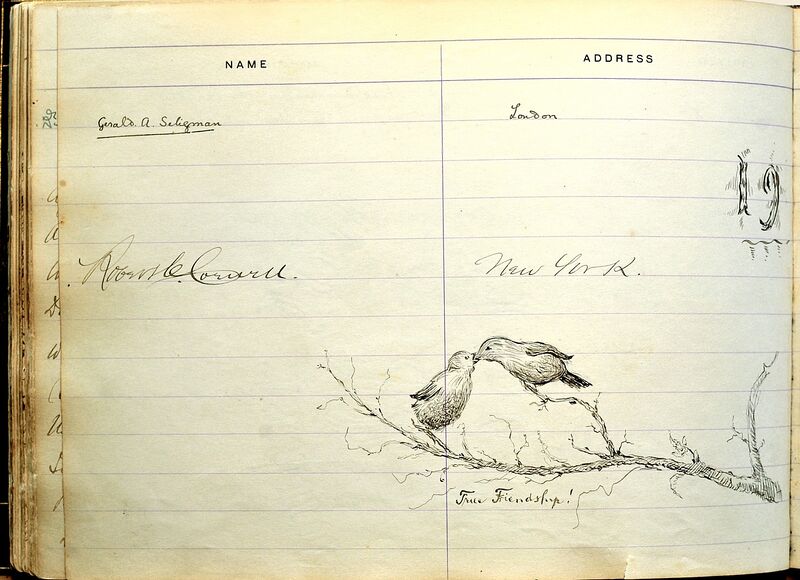 NAME ADDRESS
Gerald. A. Seligman London
19
Robert C. New York.
True Friendship!